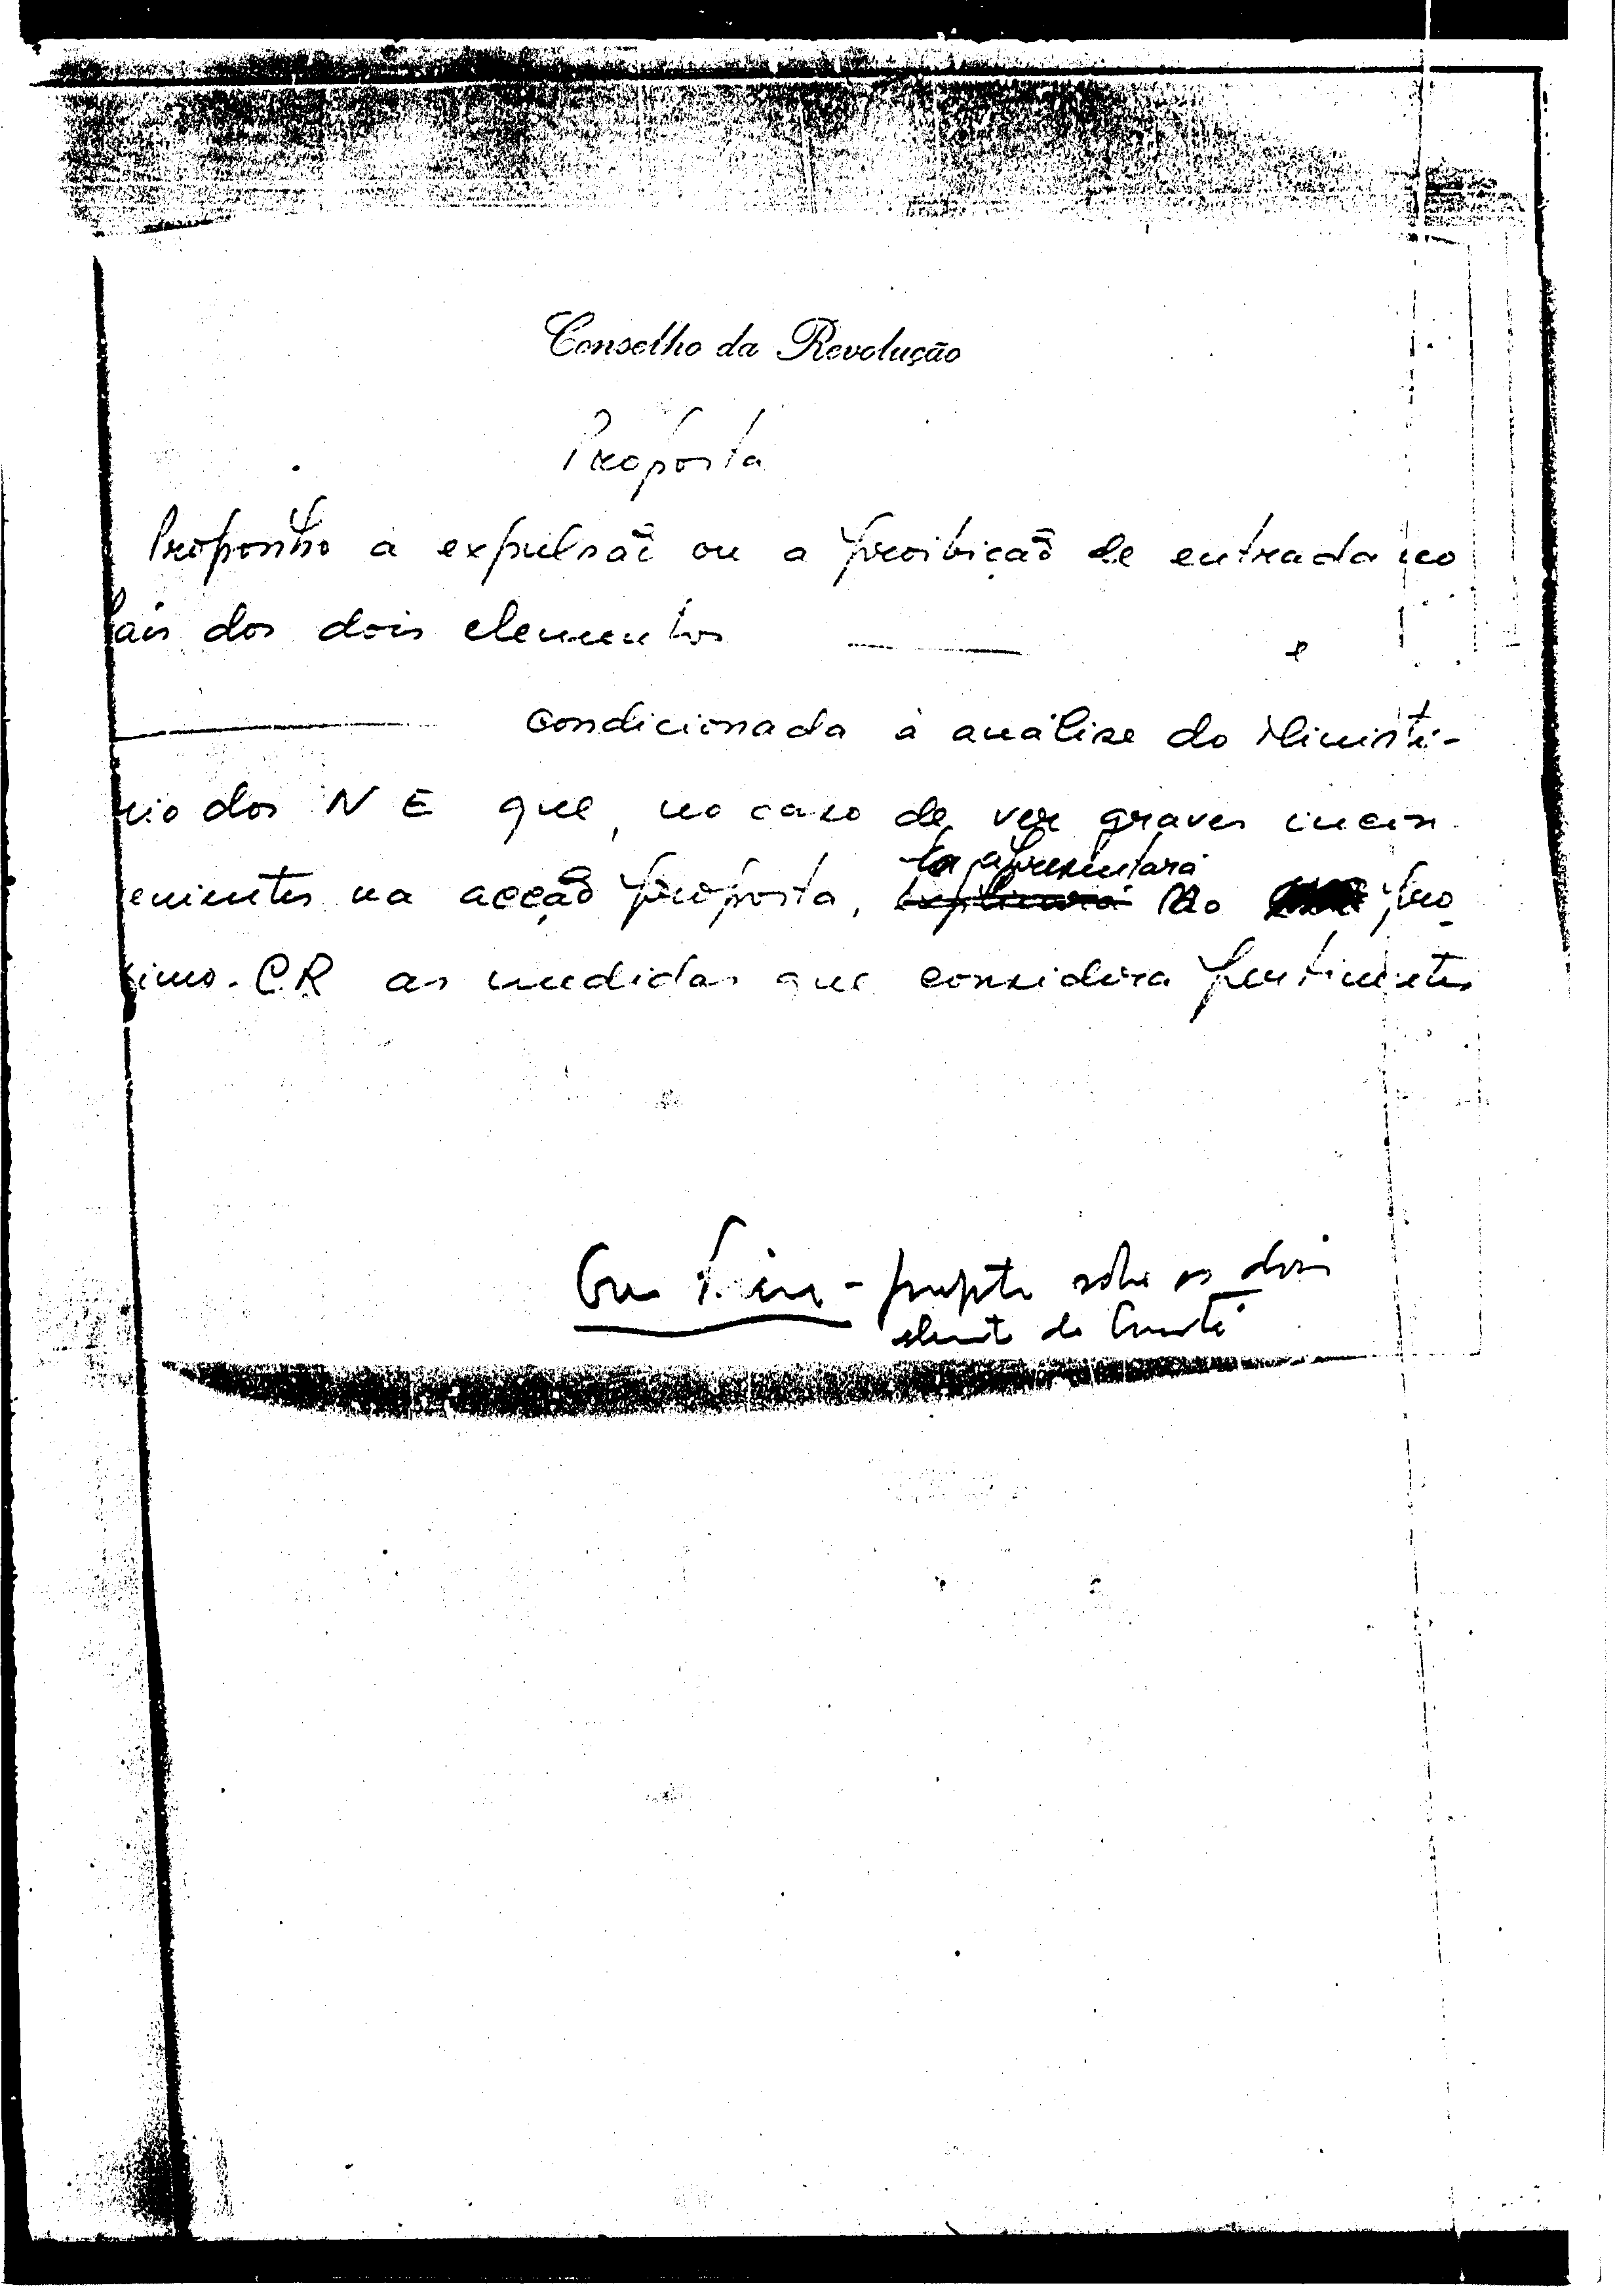 Conselho da Revolução
Proposta
Proponho a expulsão ou a proibição de entrada no
País dos dois elementos ——— e
——— condicionada à análise do Ministé-
rio dos N E que, no caso de ver graves incon
enientes na acção proposta, apresentará
explicará ao pró
ximo. CR as medidas que considera pertinentes
proposta sobre os dois